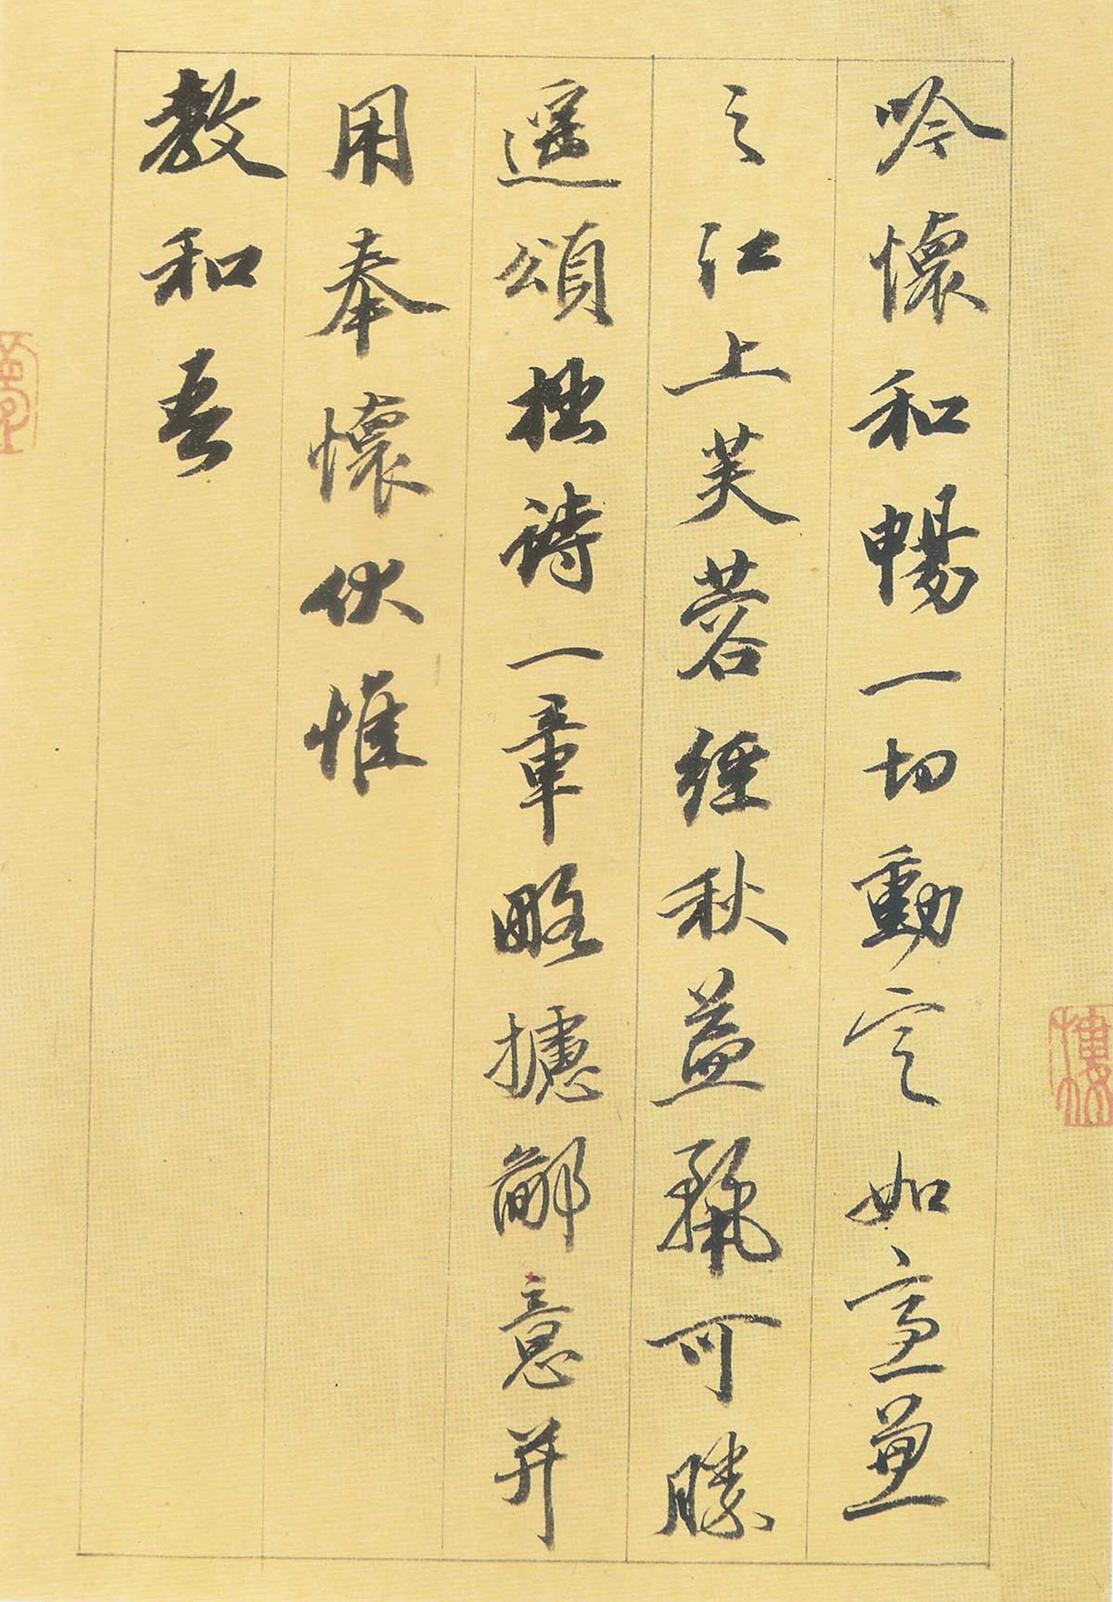 吟懷和暢一切動定如宜兼
之江上芙蓉經秋益可勝
遥頌拙詩一章略攄鄙意并
用奉懷伏惟
教和吾